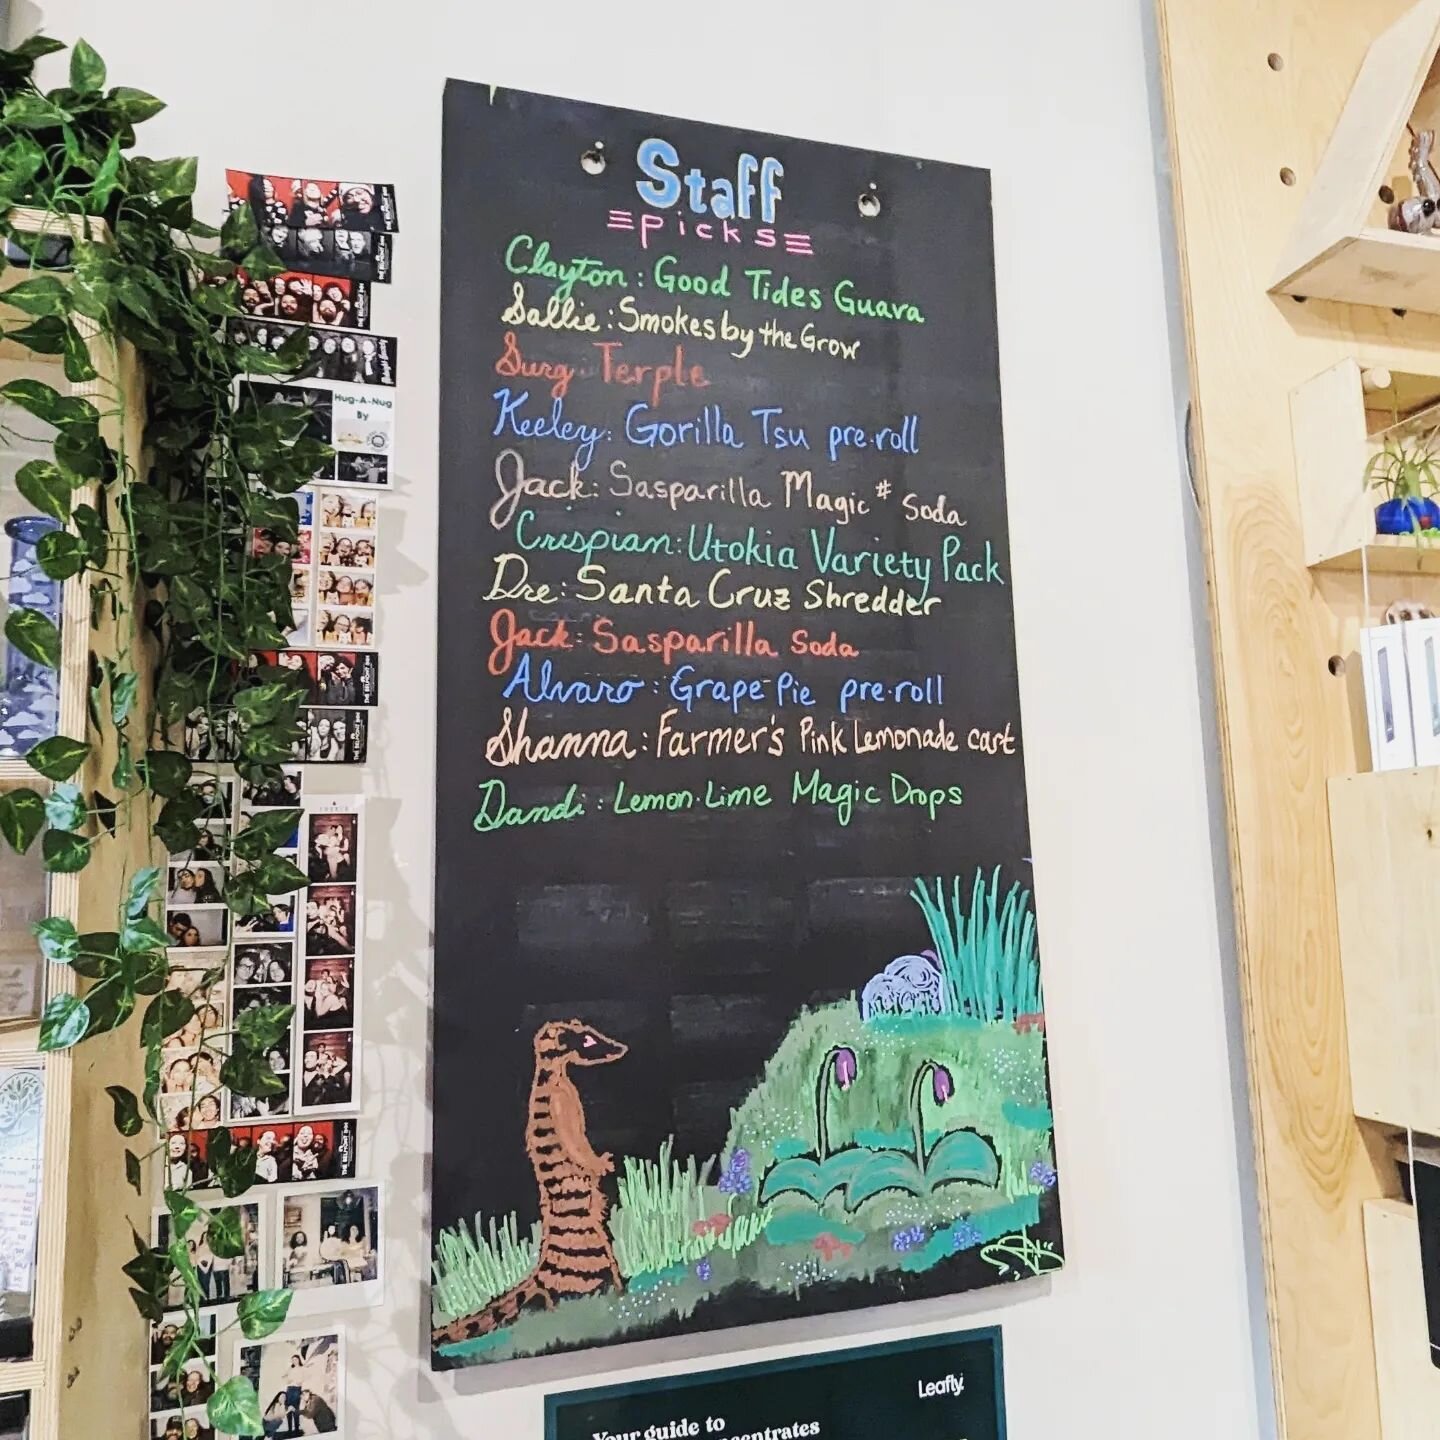 Staff
picks
Clayton: Good Tides Guava
Sallie: Smokes by the Grow
Surg: Terple
Keeley: Gorilla Tsu pre-roll
Jack: Sasparilla Magic # Soda
Crispian: Utokia Variety Pack
Dre: Santa Cruz Shredder
Jack: Sasparilla Soda
Alvaro: Grape Pie pre-roll
Shanna: Farmer's Pink Lemonade cart
Dandi: Lemon-Lime Magic Drops
Hug-A-Nug
By
Leafly.
Your guide to